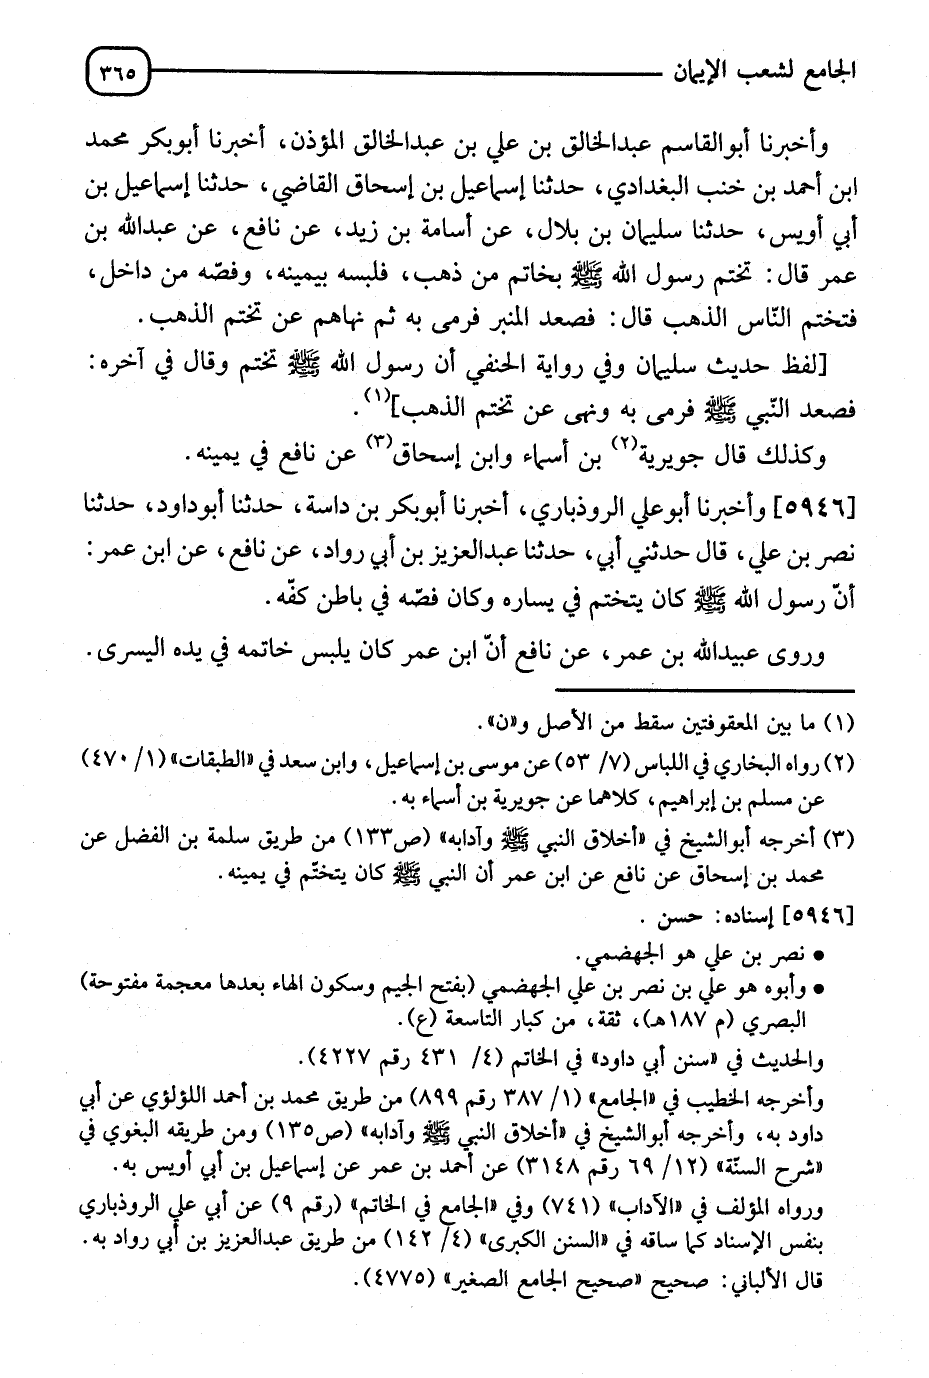 الجامع لشعب الإيمان ٣٦٥
وأخبرنا أبوالقاسم عبدالخالق بن علي بن عبدالخالق المؤذن، أخبرنا أبوبكر محمد
ابن أحمد بن خنب البغدادي، حدثنا إسماعيل بن إسحاق القاضي، حدثنا إسماعيل بن
أبي أويس، حدثنا سليمان بن بلال، عن أسامة بن زيد، عن نافع، عن عبدالله بن
عمر قال: تختم رسول الله ﷺ بخاتم من ذهب، فلبسه بيمينه، وفصّه من داخل،
فتختم النّاس الذهب قال: فصعد المنبر فرمى به ثم نهاهم عن تختم الذهب.
[لفظ حديث سليمان وفي رواية الحنفي أن رسول الله ﷺ تختم وقال في آخره:
فصعد النّبي ﷺ فرمى به ونهى عن تختم الذهب](١).
وكذلك قال جويرية(٢) بن أسماء وابن إسحاق(٣) عن نافع في يمينه.
[٥٩٤٦] وأخبرنا أبوعلي الروذباري، أخبرنا أبوبكر بن داسة، حدثنا أبوداود، حدثنا
نصر بن علي، قال حدثني أبي، حدثنا عبدالعزيز بن أبي رواد، عن نافع، عن ابن عمر:
أنّ رسول الله ﷺ كان يتختم في يساره وكان فصّه في باطن كفّه.
وروى عبيدالله بن عمر، عن نافع أنّ ابن عمر كان يلبس خاتمه في يده اليسرى.
(١) ما بين المعقوفتين سقط من الأصل و«ن».
(٢) رواه البخاري في اللباس (٧/ ٥٣) عن موسى بن إسماعيل، وابن سعد في «الطبقات» (١/ ٤٧٠)
عن مسلم بن إبراهيم، كلاهما عن جويرية بن أسماء به.
(٣) أخرجه أبوالشيخ في «أخلاق النبي ﷺ وآدابه» (ص١٣٣) من طريق سلمة بن الفضل عن
محمد بن إسحاق عن نافع عن ابن عمر أن النبي ﷺ كان يتختّم في يمينه.
[٥٩٤٦] إسناده: حسن .
• نصر بن علي هو الجهضمي.
• وأبوه هو علي بن نصر بن علي الجهضمي (بفتح الجيم وسكون الهاء بعدها معجمة مفتوحة)
البصري (م ١٨٧هـ)، ثقة، من كبار التاسعة (ع).
والحديث في «سنن أبي داود» في الخاتم (٤/ ٤٣١ رقم ٤٢٢٧).
وأخرجه الخطيب في «الجامع» (١/ ٣٨٧ رقم ٨٩٩) من طريق محمد بن أحمد اللؤلؤي عن أبي
داود به، وأخرجه أبوالشيخ في «أخلاق النبي ﷺ وآدابه» (ص١٣٥) ومن طريقه البغوي في
«شرح السنّة» (١٢/ ٦٩ رقم ٣١٤٨) عن أحمد بن عمر عن إسماعيل بن أبي أويس به.
ورواه المؤلف في «الآداب» (٧٤١) وفي «الجامع في الخاتم» (رقم ٩) عن أبي علي الروذباري
بنفس الإسناد كما ساقه في «السنن الكبرى» (٤/ ١٤٢) من طريق عبدالعزيز بن أبي رواد به.
قال الألباني: صحيح «صحيح الجامع الصغير» (٤٧٧٥).